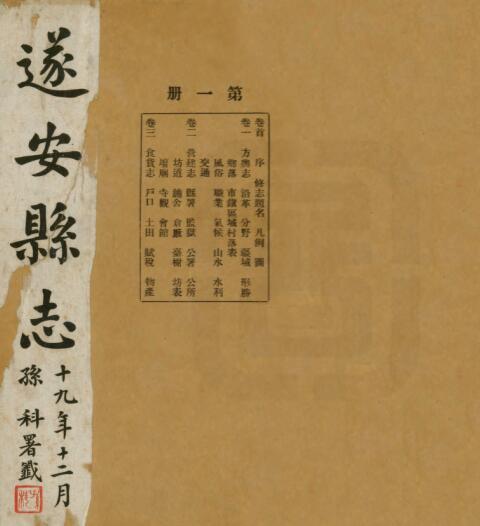 遂安縣志
十九年十二月
孫科署籤
第一册
卷首 序 修志題名 凡例 圖
卷一 方輿志 沿革 分野 疆域 形勝
鄉落 市鎮區域村落表
風俗 職業 氣候 山水 水利
交通
卷二 營建志 縣署 監獄 公署 公所
坊道 鋪舍 倉廒 臺榭 坊表
壇廟 寺觀 會館
卷三 食貨志 戶口 土田 賦稅 物產